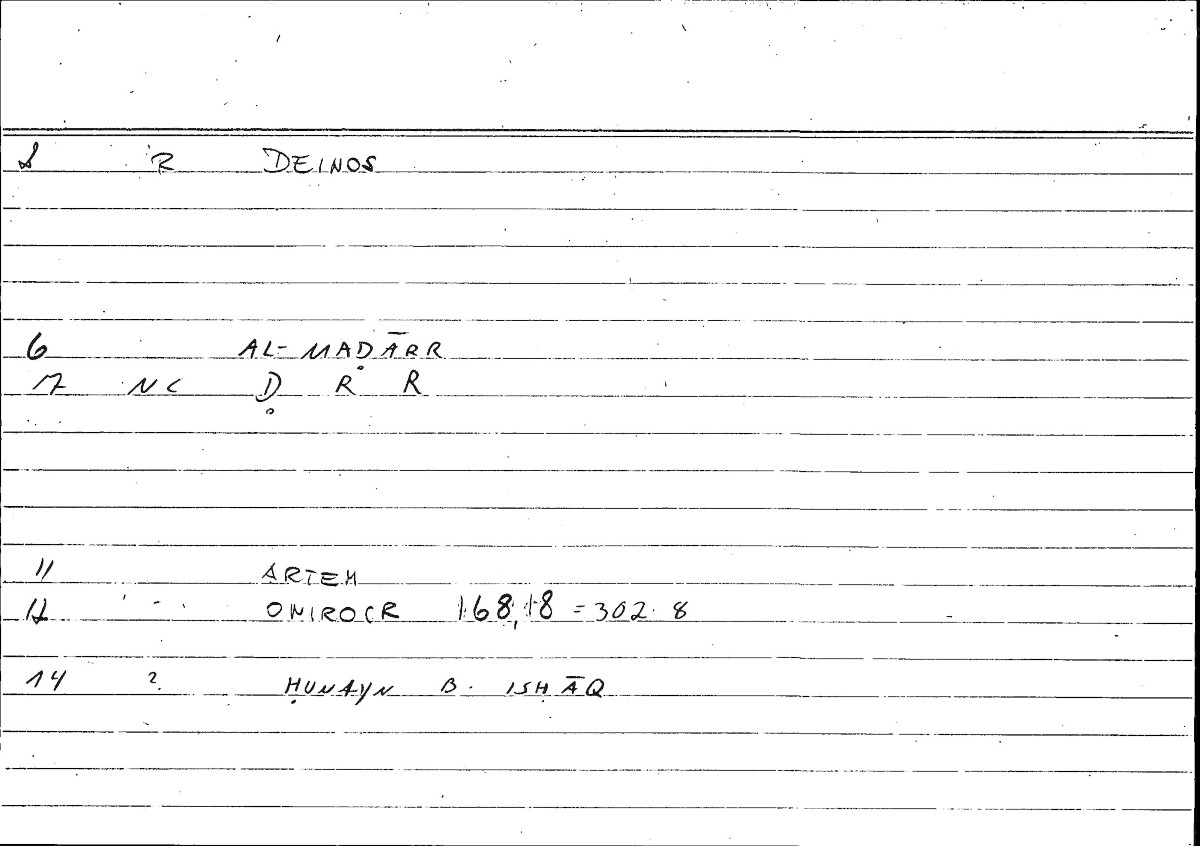 1 R DEINOS
6 AL-MAḌĀRR
17 NC Ḍ R R
11 ARTEM
12 ONIROCR 168,18 = 302.8
14 ? ḤUNAYN B. ISḤĀQ